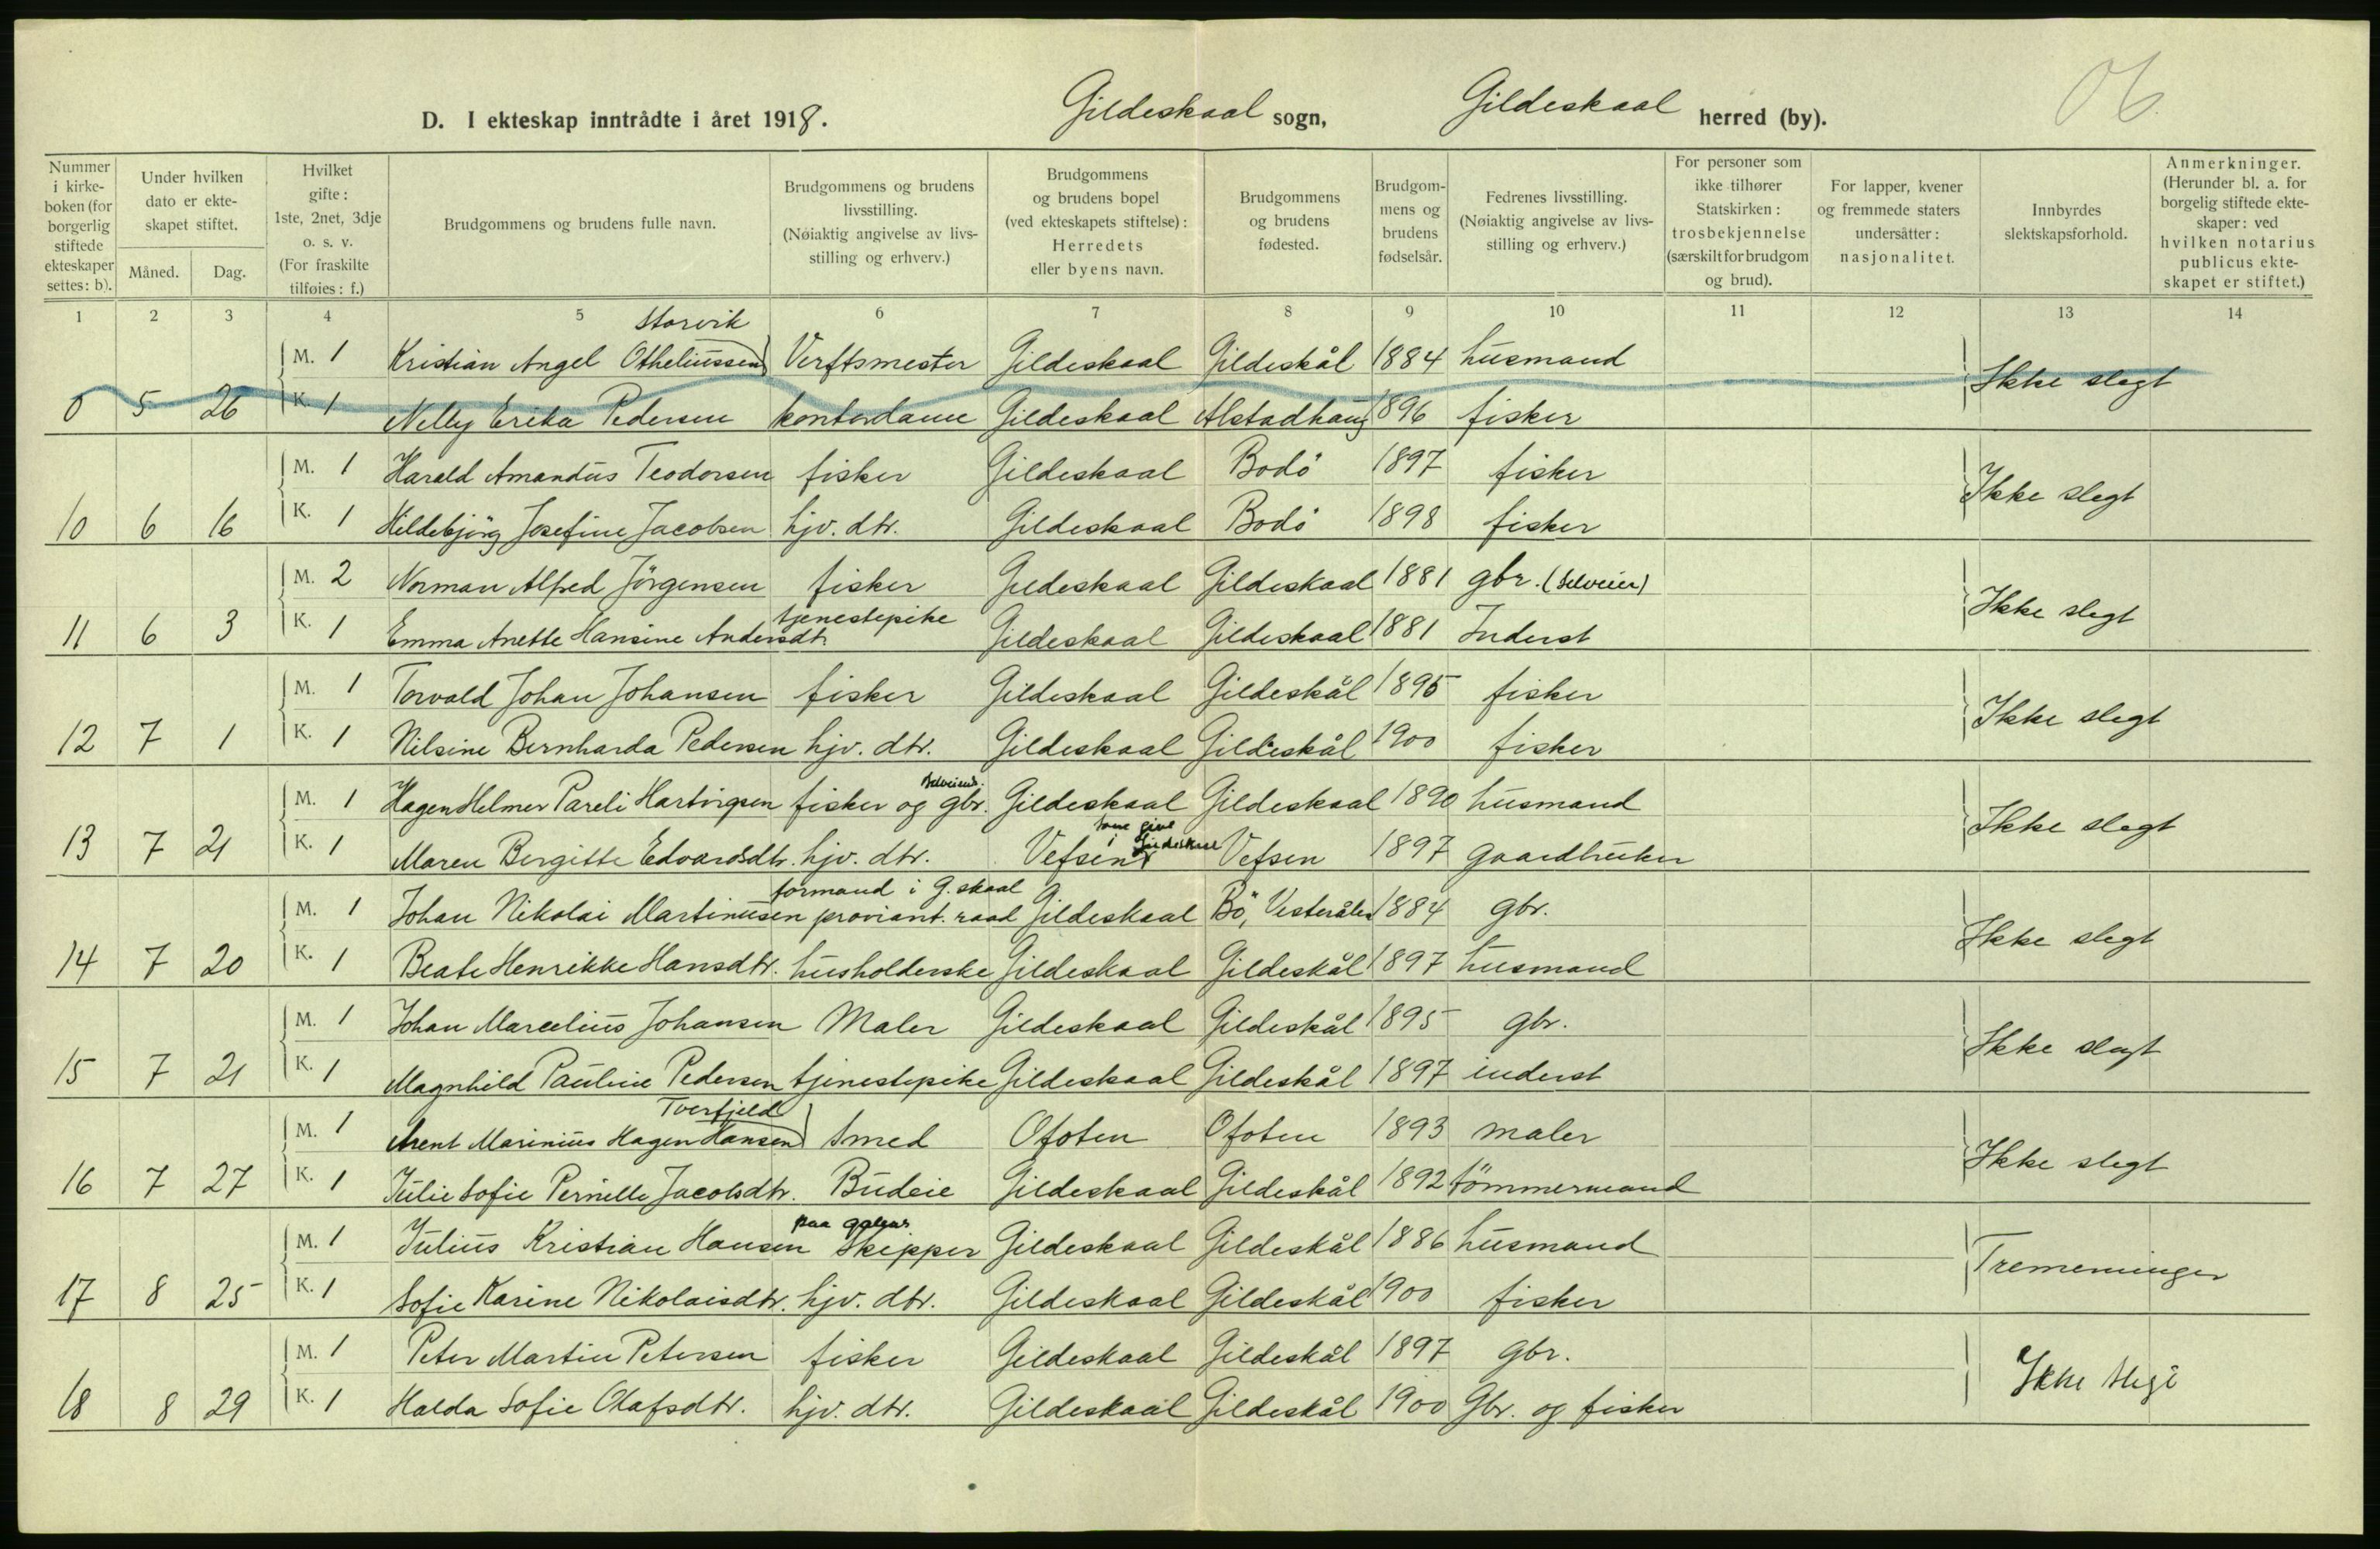 D. I ekteskap inntrådte i året 1918. Gildeskaal sogn, Gildeskaal herred (by).
Nummer i kirke-boken (for borgerlig stiftede ekteskaper settes: b).
Under hvilken dato er ekte-skapet stiftet.
Måned. Dag.
Hvilket gifte: 1ste, 2net, 3dje o. s. v. (For fraskilte tilføies: f.)
Brudgommens og brudens fulle navn.
Brudgommens og brudens livsstilling. (Nøiaktig angivelse av livs-stilling og erhverv.)
Brudgommens og brudens bopel (ved ekteskapets stiftelse): Herredets eller byens navn.
Brudgommens og brudens fødested.
Brudgom-mens og brudens fødselsår.
Fedrenes livsstilling. (Nøiaktig angivelse av livs-stilling og erhverv.)
For personer som ikke tilhører Statskirken: trosbekjennelse (særskilt for brudgom og brud).
For lapper, kvener og fremmede staters undersåtter: nasjonalitet.
Innbyrdes slektskapsforhold.
Anmerkninger. (Herunder bl. a. for borgelig stiftede ekte-skaper: ved hvilken notarius publicus ekte-skapet er stiftet.)
1 2 3 4 5 6 7 8 9 10 11 12 13 14
Storvik
M. 1 Kristian Angel Otheliussen) Verftsmester Gildeskaal Gildeskål 1884 husmand
Ikke slegt
0 5 26 K. 1 Nelly Erika Pedersen kontordame Gildeskaal Alstadhaug 1896 fisker
M. 1 Harald Amandus Teodorsen fisker Gildeskaal Bodö 1897 fisker
Ikke slegt
10 6 16 K. 1 Hildebjörg Josefine Jacobsen hjv. dtr. Gildeskaal Bodö 1898 fisker
M. 2 Norman Alfred Jörgensen fisker Gildeskaal Gildeskaal 1881 gbr. (Selveier)
Ikke slegt
tjenestepike
11 6 3 K. 1 Emma Anette Hansine Andersdtr. Gildeskaal Gildeskaal 1881 Inderst
M. 1 Torvald Johan Johansen fisker Gildeskaal Gildeskål 1895 fisker
Ikke slegt
12 7 1 K. 1 Nilsine Bernharda Pedersen hjv. dtr. Gildeskaal Gildeskål 1900 fisker
M. 1 Hagen Helmer Pareli Hartvigsen fisker og gbr. Gildeskaal Gildeskaal 1890 husmand
Ikke slegt
13 7 21 K. 1 Maren Bergitte Edvardsdtr. hjv. dtr. Vefsen Vefsen 1897 gaardbruker
formand i G.skaal
M. 1 Johan Nikolai Martinusen proviant. raad Gildeskaal Bö, Vesterålen 1884 gbr.
Ikke slegt
14 7 20 K. 1 Beate Henrikke Hansdtr. husholderske Gildeskaal Gildeskål 1897 husmand
M. 1 Johan Marcelius Johansen Maler Gildeskaal Gildeskål 1895 gbr.
Ikke slegt
15 7 21 K. 1 Magnhild Pauline Pedersen tjenestepike Gildeskaal Gildeskål 1897 inderst
Tverfjeld
M. 1 Arent Marinius Hagen Hansen) Smed Ofoten Ofoten 1893 maler
Ikke slegt
16 7 27 K. 1 Julie Sofie Pernille Jacobsdtr. Budeie Gildeskaal Gildeskål 1892 tömmermand
paa
M. 1 Julius Kristian Hansen Skipper Gildeskaal Gildeskål 1886 husmand
Tremenninger
17 8 25 K. 1 Sofie Karine Nikolaisdtr. hjv. dtr. Gildeskaal Gildeskål 1900 fisker
M. 1 Peter Martin Petersen fisker Gildeskaal Gildeskål 1897 gbr.
Ikke slegt
18 8 29 K. 1 Halda Sofie Olafsdtr. hjv. dtr. Gildeskaal Gildeskål 1900 Gbr. og fisker